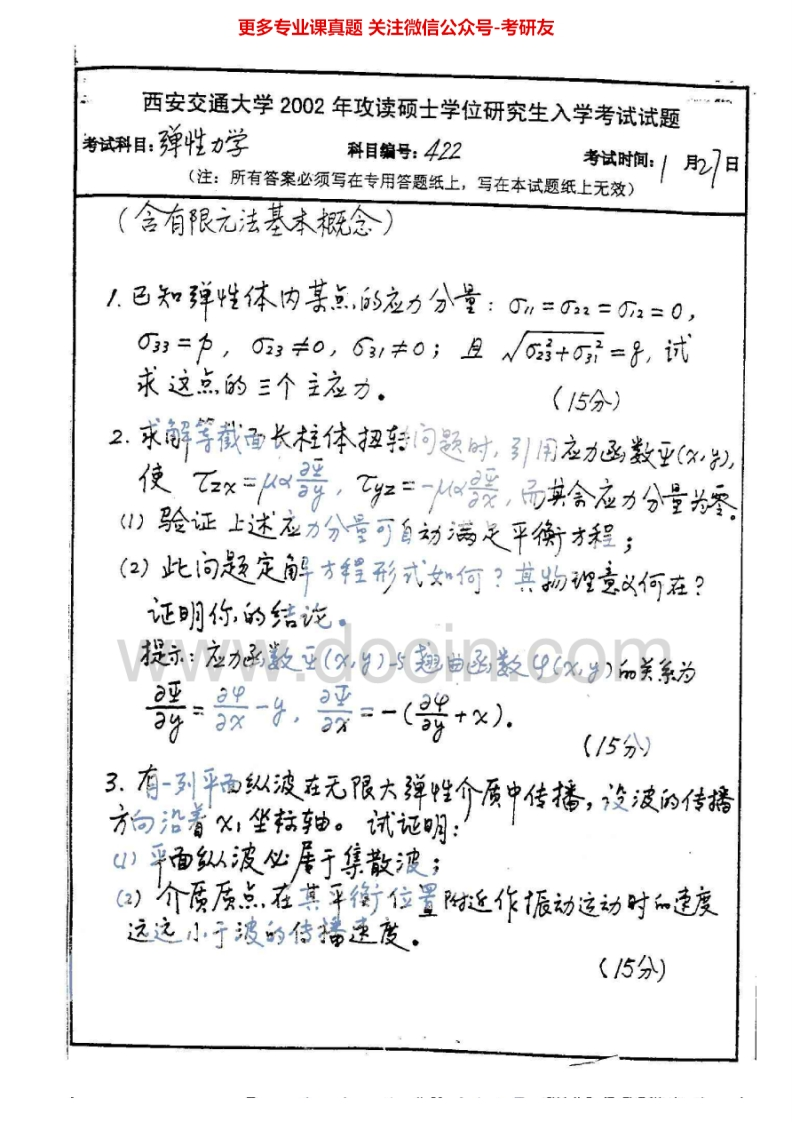 更多专业课真题 关注微信公众号-考研友
西安交通大学 2002 年攻读硕士学位研究生入学考试试题
考试科目: 弹性力学 科目编号: 422 考试时间: 1 月 27 日
(注: 所有答案必须写在专用答题纸上, 写在本试题纸上无效)
(含有限元法基本概念)
1. 已知弹性体内某点的应力分量: σ₁₁ = σ₂₂ = σ₁₂ = 0,
σ₃₃ = p, σ₂₃ ≠ 0, σ₃₁ ≠ 0; 且 √(σ₂₃² + σ₃₁²) = q, 试
求这点的三个主应力。 (15分)
2. 求解等截面长柱体扭转问题时, 引用应力函数Ψ(x,y),
使 τzx = μα ∂Ψ/∂y, τyz = -μα ∂Ψ/∂x, 而其余应力分量为零。
(1) 验证上述应力分量可自动满足平衡方程;
(2) 此问题定解方程形式如何? 其物理意义何在?
证明你的结论。
www.docin.com
提示: 应力函数Ψ(x,y)与翘曲函数φ(x,y)的关系为
∂Ψ/∂y = ∂φ/∂x - y, ∂Ψ/∂x = -(∂φ/∂y + x).
(15分)
3. 有一列平面纵波在无限大弹性介质中传播, 设波的传播
方向沿着 x₁ 坐标轴。试证明:
(1) 平面纵波必属于集散波;
(2) 介质质点在其平衡位置附近作振动运动时的速度
远远小于波的传播速度。
(15分)